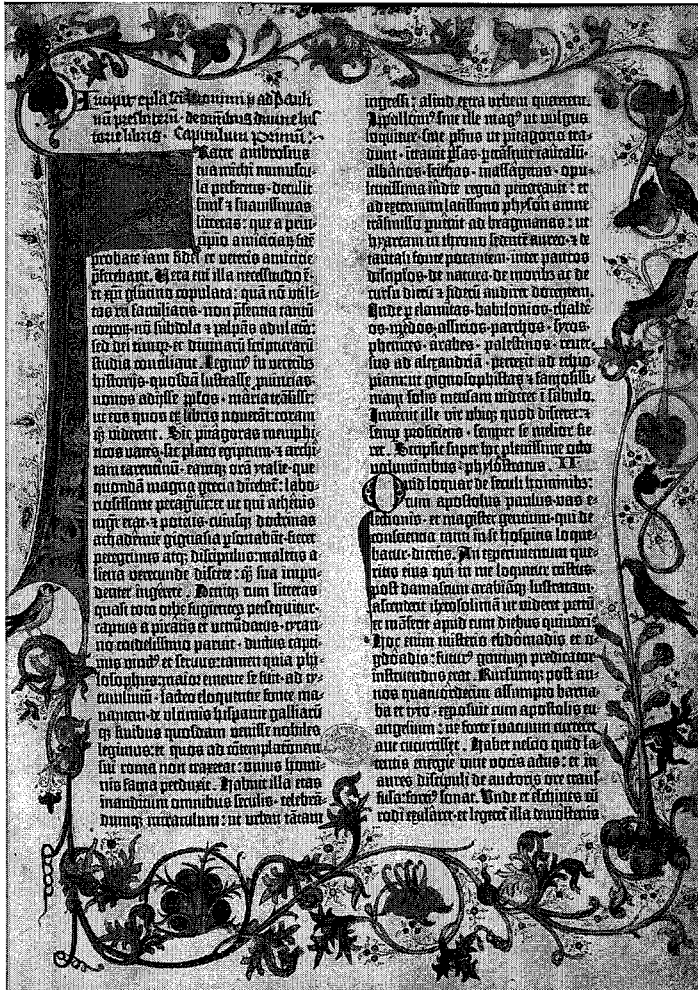 Incipit epistola sancti iheronimi ad pauli
nū presbiterū de omnibus diuine his
torie libris. Capitulum primū.
Frater ambrosius
tua michi munuscu
la perferens detulit
simul et suauissimas
litteras: que a prin
cipio amiciciaꝝ fidē
probate iam fidei et veteris amicicie
preferebant. Vera eni illa necessitudo ē·
et xp̄i glutino copulata: quā nō utili-
tas rei familiaris· non pn̄tia tantū
corpoꝝ· nō subdola ⁊ palpās adulatō·
sed dei timor· et diuinaꝝ scripturarū
studia conciliant. Legimꝰ in veteribꝫ
historijs· quosdā lustrasse ꝓuincias·
nouos adijsse ꝑlos· maria trāsisse:
ut eos quos ex libris nouerāt: coram
qꝫ viderent. Sic pitagoras memphi-
ticos vates· sic plato egiptum· ⁊ archi
tam tarentinū· eamqꝫ orā ytalie· que
quondā magna grecia dicebat̄: labo-
riosissime peragrauit: et ut qui athenis
mgr̄ erat· ⁊ potens· cuiusqꝫ doctrinas
achademie gignasia ꝑsonabāt· fieret
peregrinus atqꝫ discipulus: malens a-
liena verecunde discere: qꝫ sua impu-
denter ingerere. Deniqꝫ cum litteras
quasi toto orbe fugientes persequitur·
captus a piratis et venūdatus· tyran-
no crudelissimo paruit· ductus capti-
uus vinctꝰ et seruus: tamen quia phi-
losophus: maior emente se fuit· ad ty-
tumliuiū· lacteo eloquentie fonte ma-
nantem· de vltimis hispanie galliarū
qꝫ finibus quosdam venisse nobiles
legimus: et quos ad cōtemplacōnem
sui roma non traxerat: unius homi-
nis fama perduxit. Habuit illa etas
inauditum omnibus seculis· celebrā-
dumqꝫ miraculum: ut urbem tātam
ingressi: aliud extra urbem quererent.
Apolloniꝰ siue ille magꝰ ut vulgus
loquitur· siue phꝰs ut pitagorici tra-
dunt· ītrauit ꝑsas· ꝑtrāsiuit caucasū·
albanos· scithas· massagetas· opu-
lentissima īdie regna penetrauit: et
ad extremum latissimo physon amne
trāsmisso ꝑuenit ad bragmanas: ut
hyarcam in throno sedentē aureo· ⁊ de
tantali fonte potantem· inter paucos
discipl̄os· de natura· de moribꝫ ac de
cursu dierū ⁊ siderū audiret docentem.
Inde ꝑ elamitas· babilonios· chalde-
os· medos· assirios· parthos· syros·
phenices· arabes· palestinos· reuer-
sus ad alexandriā· perrexit ad ethio-
piam: ut gignosophistas ⁊ famosissi-
mam solis mensam videret ī sabulo.
Inuenit ille vir ubiqꝫ quod disceret: ⁊
semꝑ proficiens· semper se melior fie-
ret. Scripsit super hoc plenissime octo
voluminibus· phylostratus. II
Quid loquar de seculi hominibꝫ:
cum apostolus paulus· vas e-
lectionis· et magister gentium· qui de
consciencia tanti in se hospitis loque-
batur· dicens. An experimentum que-
ritis eius qui in me loquitur cristus.
Post damascum arabiāqꝫ lustratam:
ascenderit iherosolimā ut videret petrū
et māserit apud eum diebus quindeci.
Hoc enim misterio ebdōmadis et o-
gdōadis: futurꝰ gentium predicator
instruendus erat. Rursumqꝫ post an-
nos quatuordecim assumpto barna-
ba et tyto· exposuit cum apostolis eu-
angelium: ne forte ī vacuum curreret
aut cucurrisset. Habet nescio quid la-
tentis energie viue vocis actus: et in
aures discipuli de auctoris ore trans-
fusa: forciꝰ sonat. Vnde et eschines cū
rodi exularet· et legeret illa demostenis